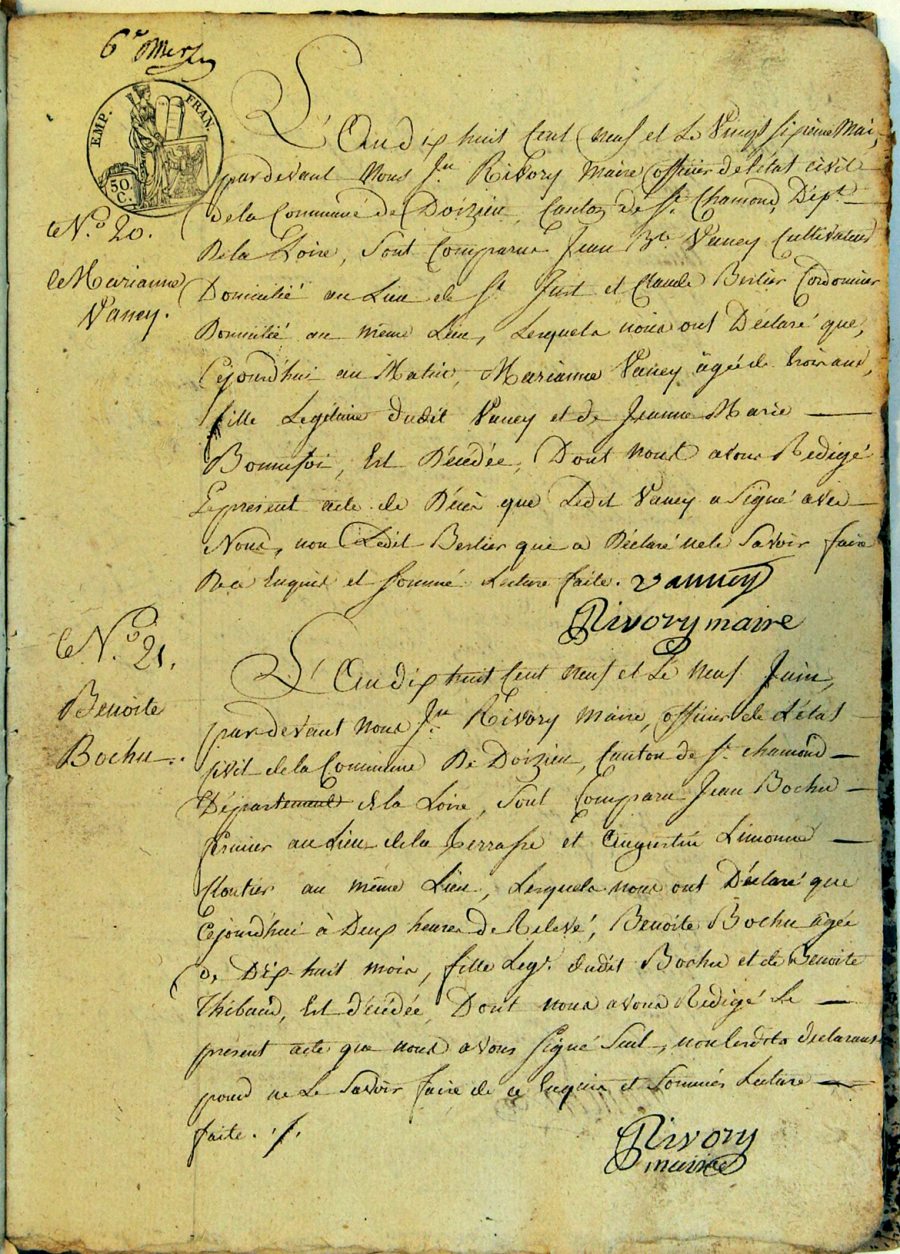 6e
EMP. FRAN.
50. C.
N.o 20.
Marianne
Vancy.
L'An dix huit Cent Neuf et Le Vingt sixième Mai,
pardevant Nous Jn Rivory Maire officier de l'état civil
de la Commune de Doizieu, Canton de St Chamond, Dépt
De la Loire, Sont Comparus Jean Bte Vancy Cultivateur
Domicilié au Lieu de St Just et Claude Bertier Cordonnier
Domicilié au même Lieu, Lesquels nous ont Déclaré que,
Cejourd'hui au Matin, Marianne Vancy âgée de trois ans,
fille Legitime dudit Vancy et de Jeanne Marie
Bonnefoi, Est Décédée, Dont nous avons Redigé
Le present acte de Décès que Ledit Vancy a Signé avec
Nous, non Ledit Bertier que a Déclaré ne le Savoir faire
De ce Enquis et Sommé Lecture faite. vanney
Rivory maire
N.o 21.
Benoite
Bochu.
L'An dix huit Cent Neuf et Le neuf Juin,
pardevant nous Jn Rivory Maire, officier de L'état
civil de la Commune De Doizieu, Canton de St chamond
Département de la Loire, Sont Comparu Jean Bochu
fermier au Lieu de la Terrasse et Augustin Limonne
Cloutier au même Lieu, Lesquels nous ont Déclaré que
Cejourd'hui à Deux heures de Relevé, Benoite Bochu âgée
De Dix huit mois, fille Leg. dudit Bochu et de Benoite
Thibaud, Est décédée, Dont nous avons Redigé Le
present acte que nous avons Signé Seul, non lesdits declarans
pour ne Le Savoir faire de ce Enquis et Sommés Lecture
faite.
Rivory
maire